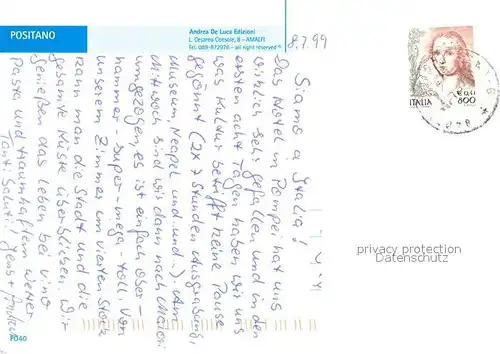 POSITANO
Andrea De Luca Edizioni
L. Cesareo Console, 8 - AMALFI
Tel. 089-872976 - all right reserved
8.7.99
ITALIA
€ 0,41
800
Siamo a Italia!
Das Hotel in Pompei hat uns
wirklich sehr gefallen und in den
ersten acht Tagen haben wir uns
was Kultur betrifft keine Pause
gegönnt (2x7 Stunden Ausgrabung,
Museum, Neapel und und..). Am
Mittwoch sind wir dann nach Maiori
umgezogen, es ist einfach ober-
hammer-super-mega-toll. Von
unserem Zimmer im vierten Stock
kann man die Stadt und die
gesamte Küste überblicken. Wir
genießen das Leben bei vino
Pasta und traumhaftem Wetter
Tanti Saluti! Jens +
privacy protection
Datenschutz
PO40